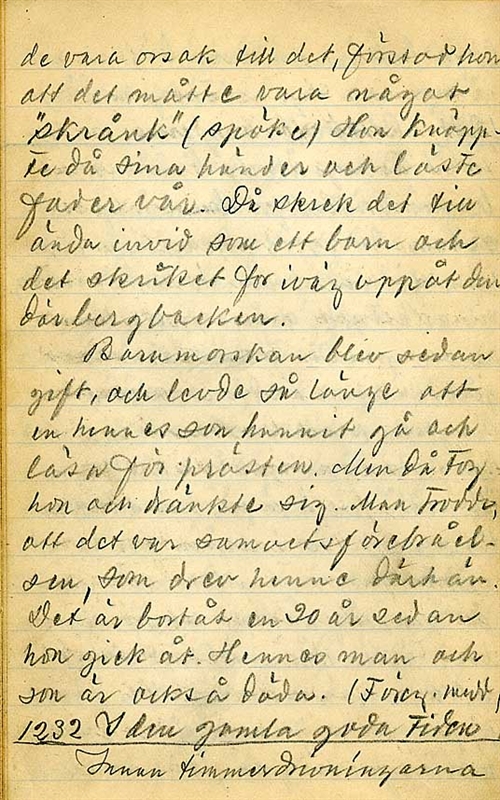 de vara orsak till det, förstod hon
att det måtte vara något
"skrånk" (spöke) Hon knäpp-
te då sina händer och läste
fader vår. Då skrek det till
ända invid som ett barn och
det skriket for iväg uppåt den
där bergbacken.
Barnmorskan blev sedan
gift, och levde så länge att
en hennes son hunnit gå och
läsa för prästen. Men då tog
hon och dränkte sig. Man trodde,
att det var samvetsförebråel-
sen, som drev henne därhän.
Det är bortåt en 20 år sedan
hon gick åt. Hennes man och
son är också döda. (Föreg. medd.
1232 I den gamla goda tiden
Innan timmerdrivningarna